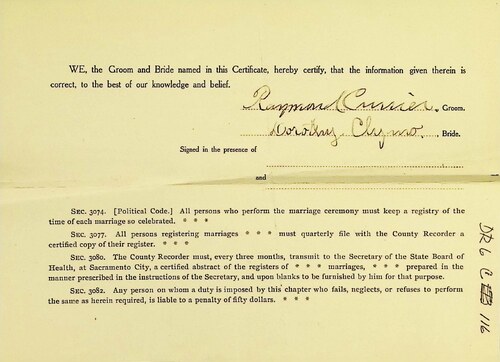 WE, the Groom and Bride named in this Certificate, hereby certify, that the information given therein is
correct, to the best of our knowledge and belief.
Raymond Currier. Groom.
Dorothy Clymo. Bride.
Signed in the presence of
and
SEC. 3074. [Political Code.] All persons who perform the marriage ceremony must keep a registry of the
time of each marriage so celebrated. * * *
SEC. 3077. All persons registering marriages * * * must quarterly file with the County Recorder a
certified copy of their register. * * *
SEC. 3080. The County Recorder must, every three months, transmit to the Secretary of the State Board of
Health, at Sacramento City, a certified abstract of the registers of * * * marriages, * * * prepared in the
manner prescribed in the instructions of the Secretary, and upon blanks to be furnished by him for that purpose.
SEC. 3082. Any person on whom a duty is imposed by this chapter who fails, neglects, or refuses to perform
the same as herein required, is liable to a penalty of fifty dollars. * * *
116